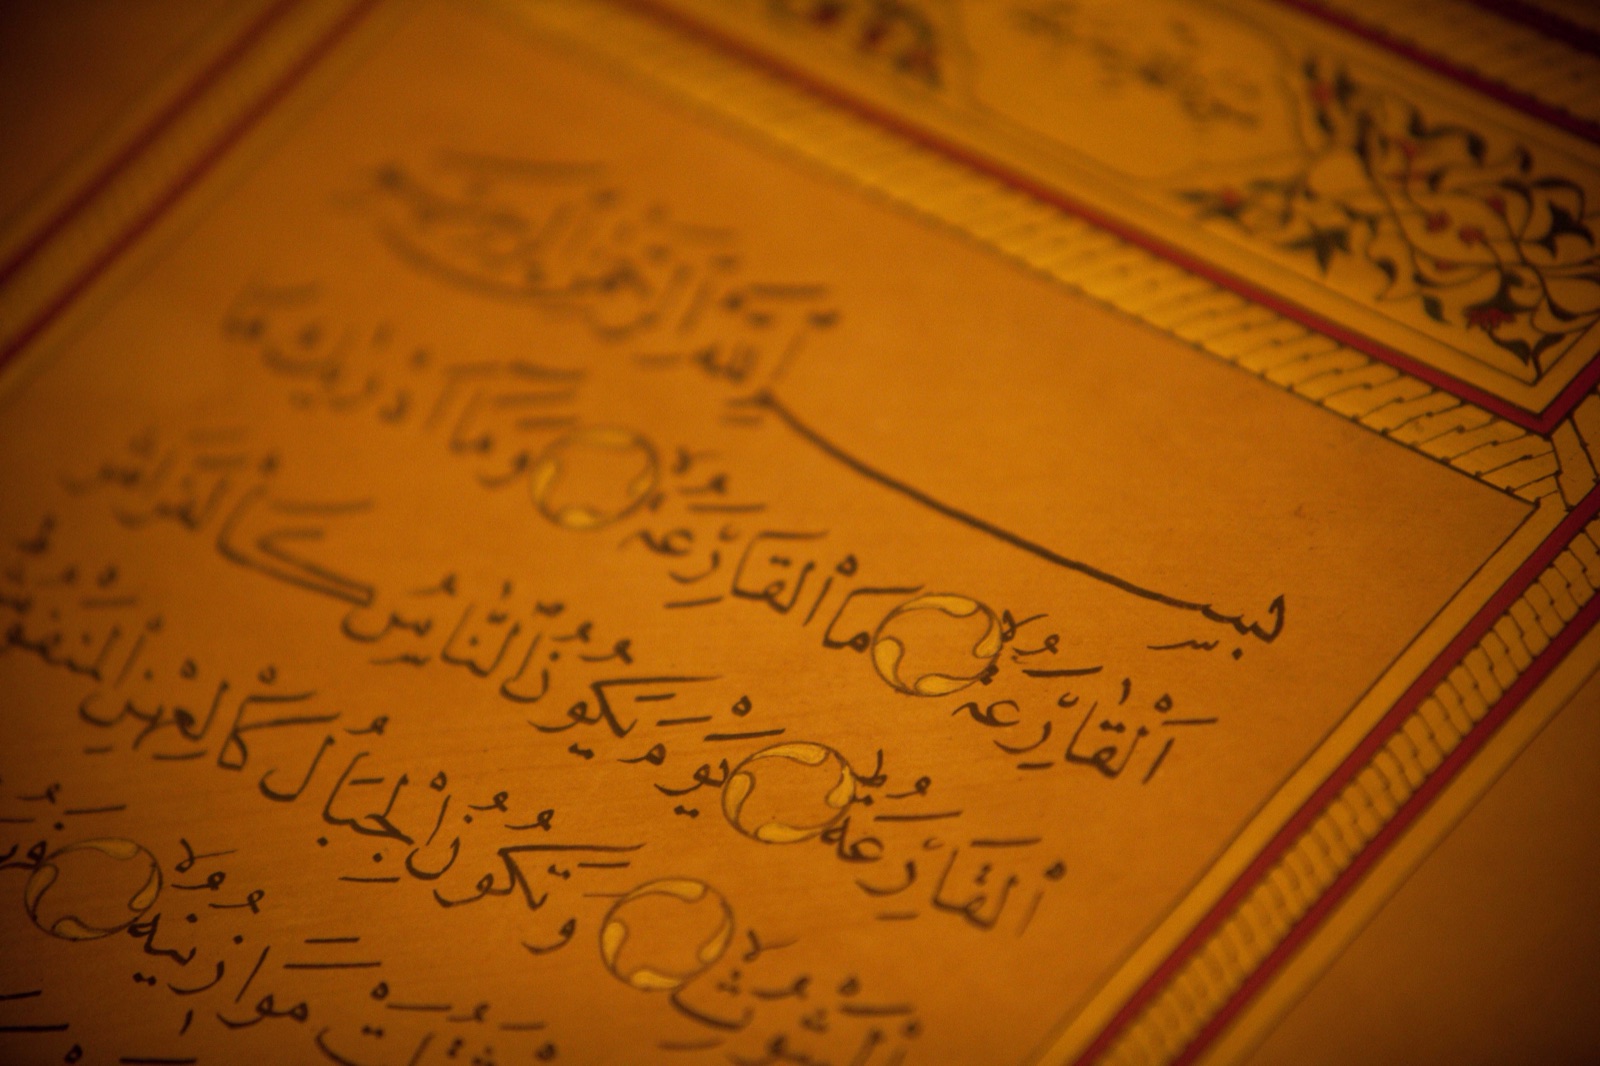 بِسْمِ ٱللَّهِ ٱلرَّحْمَٰنِ ٱلرَّحِيمِ
ٱلْقَارِعَةُ ۙ مَا ٱلْقَارِعَةُ ۚ وَمَآ أَدْرَىٰكَ مَا
ٱلْقَارِعَةُ ۗ يَوْمَ يَكُونُ ٱلنَّاسُ كَٱلْفَرَاشِ
ٱلْمَبْثُوثِ ۙ وَتَكُونُ ٱلْجِبَالُ كَٱلْعِهْنِ ٱلْمَنْفُوشِ
ثَقُلَتْ مَوَازِينُهُ ۙ